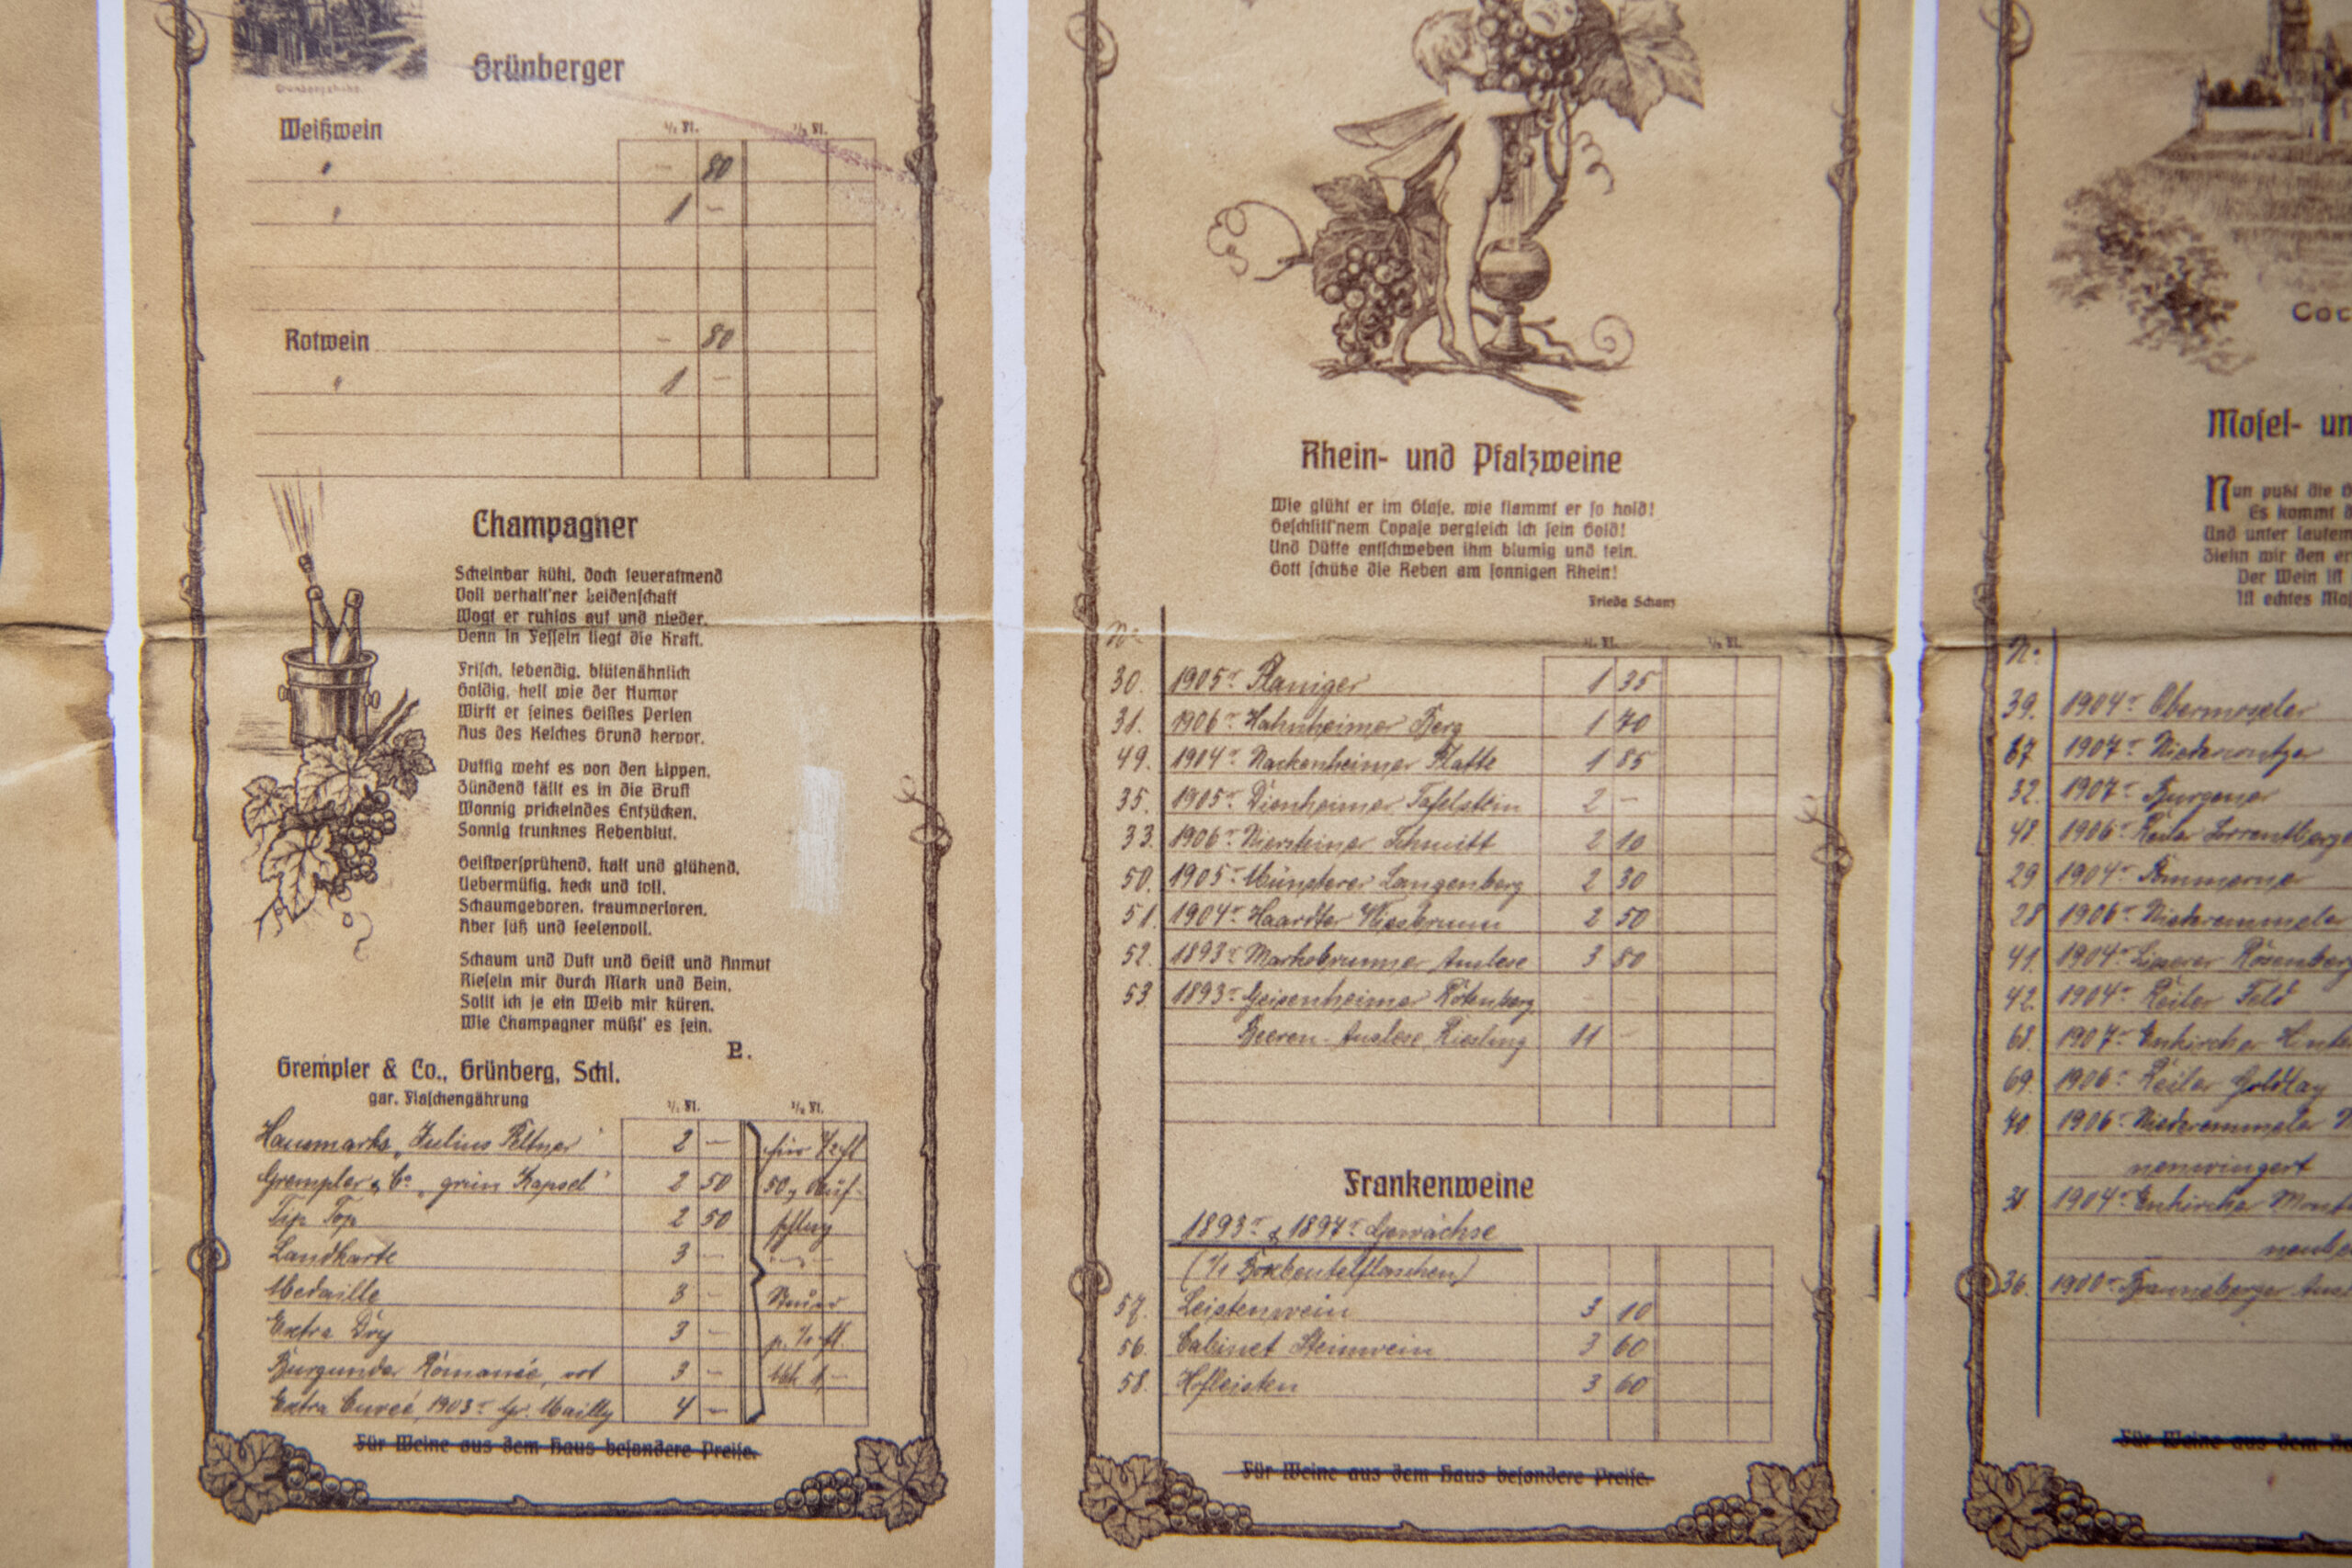 Grünberger
Weißwein
1/1 Fl. 1/2 Fl.
" – 80
" 1 –
Rotwein – 80
" 1 –
Champagner
Scheinbar kühl, doch feueratmend
Voll verhalt'ner Leidenschaft
Wogt er ruhlos auf und nieder,
Denn in Fesseln liegt die Kraft.
Frisch, lebendig, blütenähnlich
Goldig, hell wie der Humor
Wirft er seines Geistes Perlen
Aus des Kelches Grund hervor.
Duftig weht es von den Lippen,
Zündend fällt es in die Brust
Wonnig prickelndes Entzücken,
Sonnig trunknes Rebenblut.
Geistversprühend, kalt und glühend,
Uebermütig, keck und toll,
Schaumgeboren, traumverloren,
Aber süß und seelenvoll.
Schaum und Duft und Geist und Anmut
Rieseln mir durch Mark und Bein,
Sollt ich je ein Weib mir küren,
Wie Champagner müßt' es sein.
P.
Grempler & Co., Grünberg, Schl.
gar. Flaschengährung
1/1 Fl. 1/2 Fl.
Hausmarke „Julius Peltner" 2 – für 1/2 fl
Grempler & Co „grün Kapsel" 2 50 50 Auf-
Tip Top 2 50 schlag
Landkarte 3 –
Medaille 3 – Steuer
Extra Dry 3 – p. 1/1 fl.
Burgunder Römanée, rot 3 – Mk 1,–
Extra Cuveé, 1903er Gr. Mailly 4 –
Für Weine aus dem Haus besondere Preise.
Rhein- und Pfalzweine
Wie glüht er im Glase, wie flammt er so hold!
Geschliff'nem Topase vergleich ich sein Gold!
Und Düfte entschweben ihm blumig und fein.
Gott schütze die Reben am sonnigen Rhein!
Frieda Schanz
No 1/1 Fl. 1/2 Fl.
30. 1905er Planiger 1 35
31. 1906er Hahnheimer Berg 1 70
49. 1904er Nackenheimer Platte 1 85
35. 1905er Dienheimer Tafelstein 2 –
33. 1906er Niersteiner Schmitt 2 10
50. 1905er Münsterer Langenberg 2 30
51. 1904er Haardter 2 50
52. 1893er Markobrunner Auslese 3 80
53. 1893er Geisenheimer Rötenberg
Beeren-Auslese Riesling 11 –
Frankenweine
1893er & 1897er Gewächse
(1/1 Boxbeutelflaschen)
57. Leistenwein 3 10
56. Cabinet Steinwein 3 60
58. Hofleisten 3 60
Für Weine aus dem Haus besondere Preise.
Coc
Mosel- un
Nun pukt die
Es kommt
Und unter lautem
Ziehn wir den er
Der Wein ist
Ist echtes Mos
No
39. 1904er Obermoseler
67. 1907er
32. 1907er Burgener
48. 1906er Reiler
29 1904er Pommerner
28 1906er Niederemmeler
41. 1904er Lieserer Rosenberg
42. 1904er Reiler Feld
68. 1907er Enkircher
69. 1906er Reiler Goldlay
40. 1906er Niederemmeler
nenwingert
31. 1904er Enkircher
36. 1900er Brauneberger
Für Weine aus dem